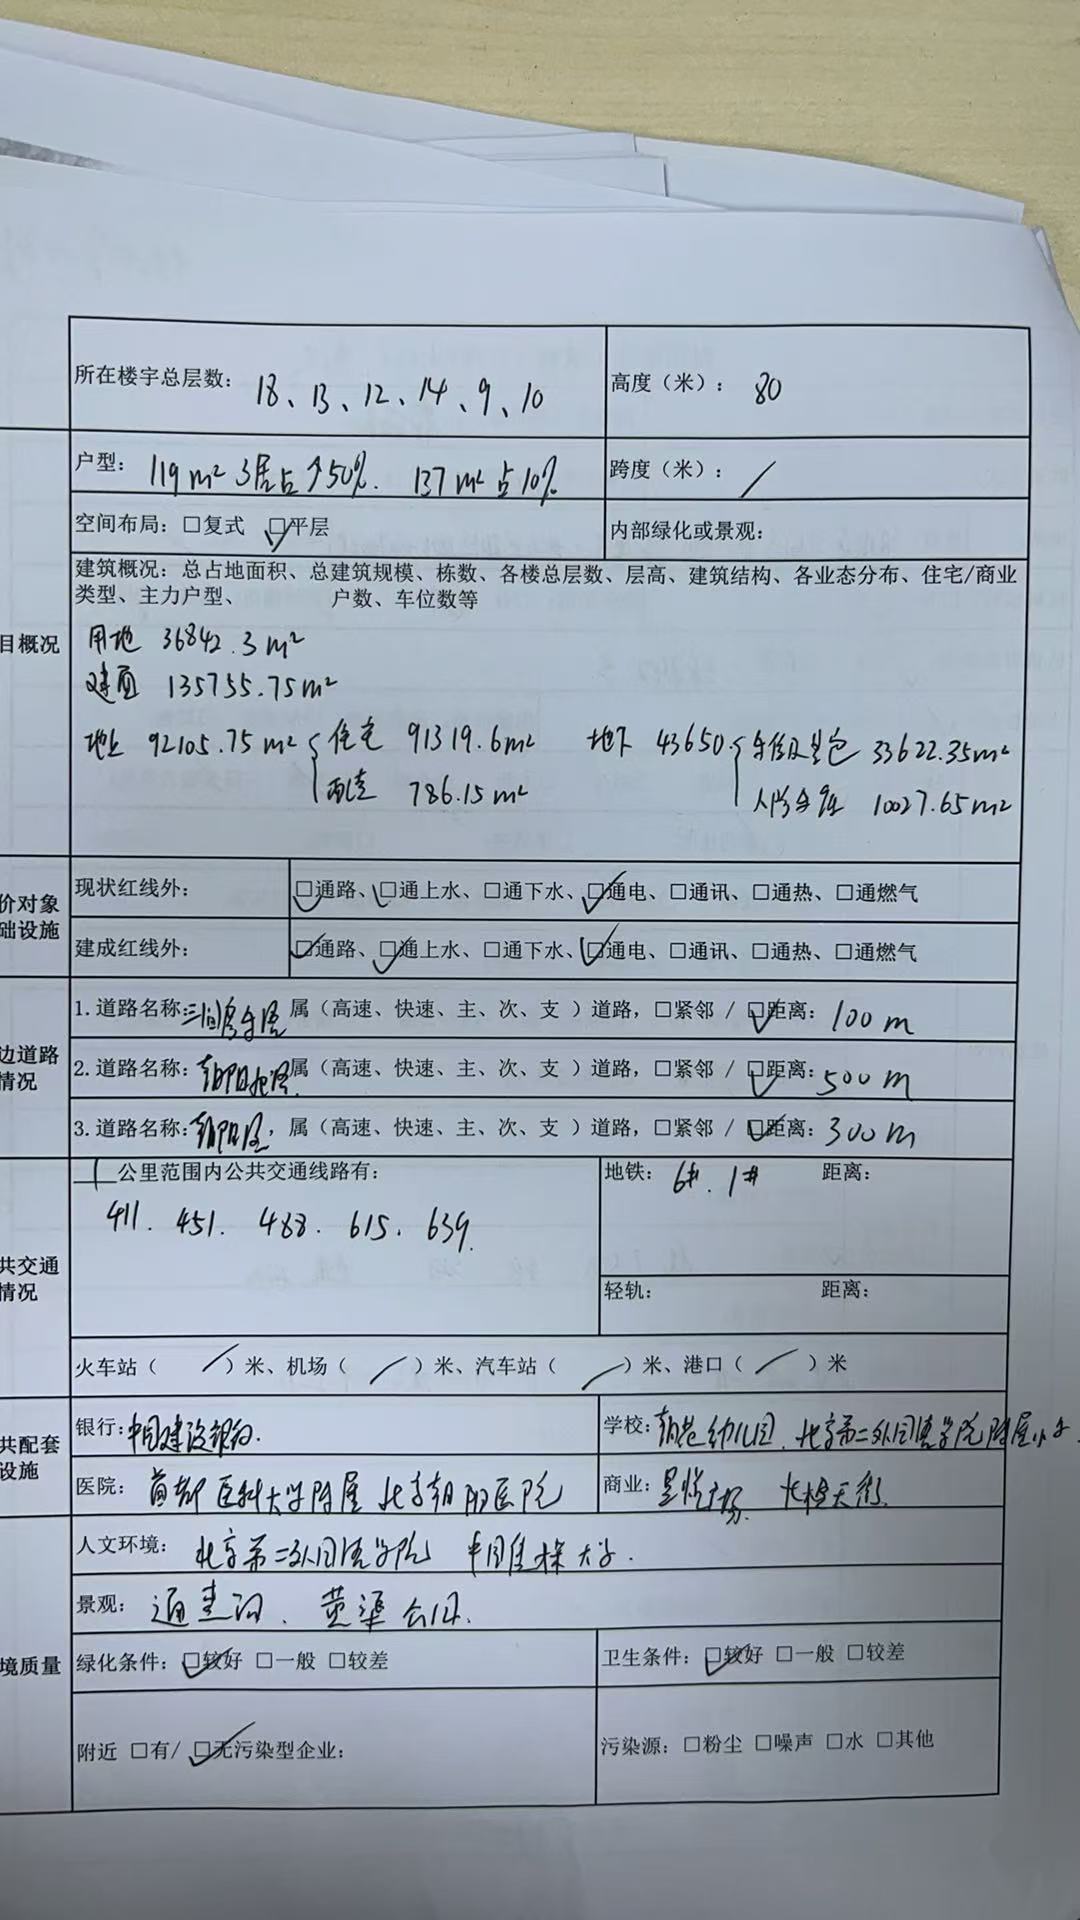 所在楼宇总层数：18、13、12、14、9、10
高度（米）：80
户型：119m² 3居占↑50%. 137m²占10%
跨度（米）：/
空间布局：□复式 ☑平层
内部绿化或景观：
建筑概况：总占地面积、总建筑规模、栋数、各楼总层数、层高、建筑结构、各业态分布、住宅/商业
类型、主力户型、 户数、车位数等
目概况
用地 36842.3m²
建面 135755.75m²
地上 92105.75m² { 住宅 91319.6m² 地下 43650. {  33622.35m²
配套 786.15m² 人防车库 10027.65m²
价对象
础设施
现状红线外：☑通路、☑通上水、□通下水、☑通电、□通讯、□通热、□通燃气
建成红线外：☑通路、☑通上水、□通下水、☑通电、□通讯、□通热、□通燃气
边道路
情况
1.道路名称：三间房 属（高速、快速、主、次、支 ）道路，□紧邻 / ☑距离：100m
2.道路名称：朝阳北路 属（高速、快速、主、次、支 ）道路，□紧邻 / ☑距离：500m
3.道路名称：朝阳路，属（高速、快速、主、次、支 ）道路，□紧邻 / ☑距离：300m
共交通
情况
1公里范围内公共交通线路有：
411. 451. 488. 615. 639.
地铁：6#. 1# 距离：
轻轨： 距离：
火车站（ / ）米、机场（ / ）米、汽车站（ / ）米、港口（ / ）米
共配套
设施
银行：中国建设银行.
学校：幼儿园. 北京第二外国语学院附属小学
医院：首都医科大学附属北京朝阳医院
商业：星悦广场. 长楹天街.
人文环境：北京第二外国语学院 中国传媒大学.
景观：通惠河. 公园.
境质量
绿化条件：☑较好 □一般 □较差
卫生条件：☑较好 □一般 □较差
附近 □有/ ☑无污染型企业：
污染源：□粉尘 □噪声 □水 □其他